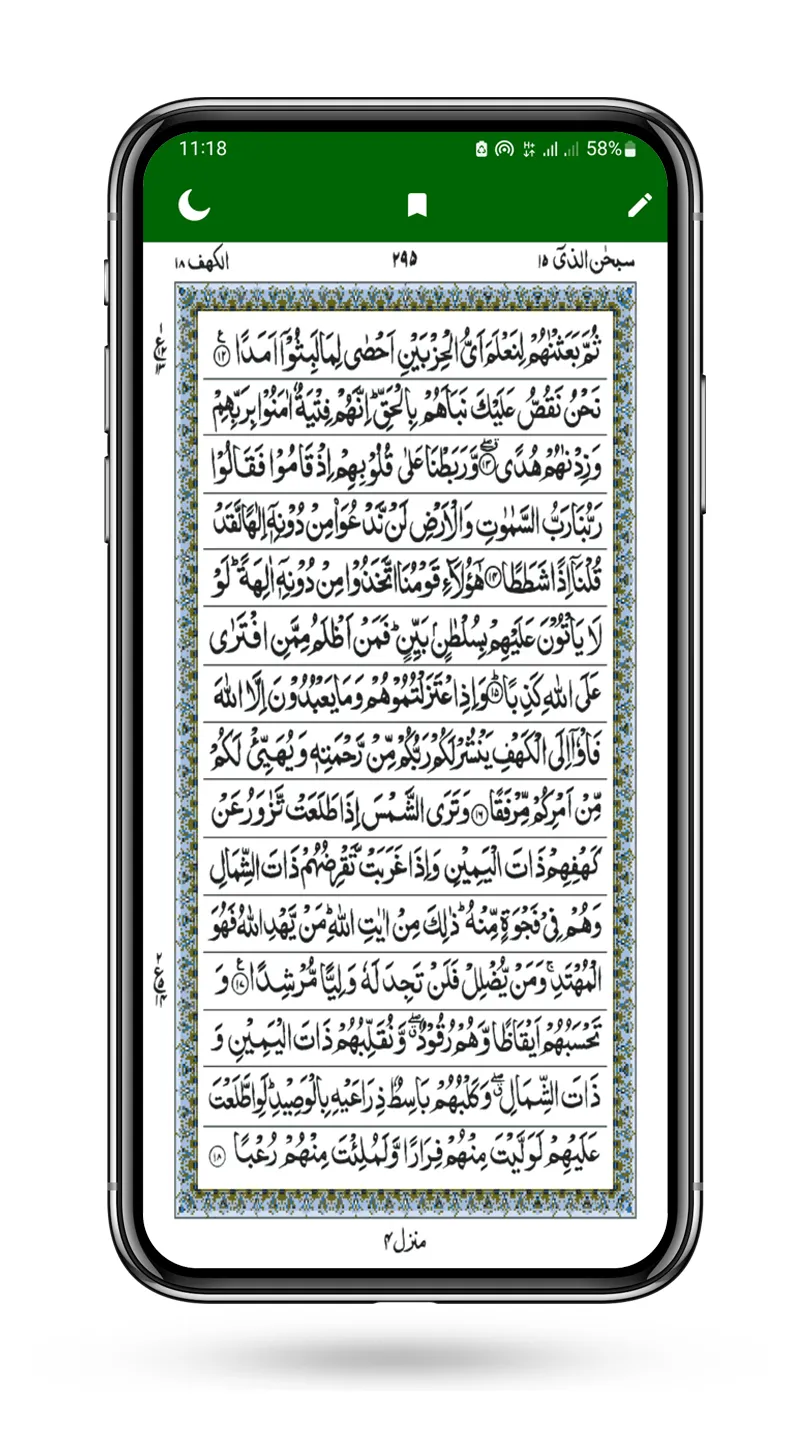 11:18 58%
سبحٰن الذیٓ ۱۵ ۲۹۵ الكهف ۱۸
ثُمَّ بَعَثْنٰهُمْ لِنَعْلَمَ اَىُّ الْحِزْبَيْنِ اَحْصٰى لِمَا لَبِثُوْۤا اَمَدًا ۱۲
نَحْنُ نَقُصُّ عَلَيْكَ نَبَاَهُمْ بِالْحَقِّ ؕ اِنَّهُمْ فِتْيَةٌ اٰمَنُوْا بِرَبِّهِمْ
وَزِدْنٰهُمْ هُدًى ۱۳ وَّرَبَطْنَا عَلٰى قُلُوْبِهِمْ اِذْ قَامُوْا فَقَالُوْا
رَبُّنَا رَبُّ السَّمٰوٰتِ وَالْاَرْضِ لَنْ نَّدْعُوَا۟ مِنْ دُوْنِهٖۤ اِلٰهًا لَّقَدْ
قُلْنَاۤ اِذًا شَطَطًا ۱۴ هٰۤؤُلَآءِ قَوْمُنَا اتَّخَذُوْا مِنْ دُوْنِهٖۤ اٰلِهَةً ؕ لَوْ
لَا يَاْتُوْنَ عَلَيْهِمْ بِسُلْطٰنٍۭ بَيِّنٍ ؕ فَمَنْ اَظْلَمُ مِمَّنِ افْتَرٰى
عَلَى اللّٰهِ كَذِبًا ۱۵ وَاِذِ اعْتَزَلْتُمُوْهُمْ وَمَا يَعْبُدُوْنَ اِلَّا اللّٰهَ
فَاْوٗۤا اِلَى الْكَهْفِ يَنْشُرْ لَكُمْ رَبُّكُمْ مِّنْ رَّحْمَتِهٖ وَيُهَيِّئْ لَكُمْ
مِّنْ اَمْرِكُمْ مِّرْفَقًا ۱۶ وَتَرَى الشَّمْسَ اِذَا طَلَعَتْ تَّزٰوَرُ عَنْ
كَهْفِهِمْ ذَاتَ الْيَمِيْنِ وَاِذَا غَرَبَتْ تَّقْرِضُهُمْ ذَاتَ الشِّمَالِ
وَهُمْ فِىْ فَجْوَةٍ مِّنْهُ ؕ ذٰلِكَ مِنْ اٰيٰتِ اللّٰهِ ؕ مَنْ يَّهْدِ اللّٰهُ فَهُوَ
الْمُهْتَدِ ۚ وَمَنْ يُّضْلِلْ فَلَنْ تَجِدَ لَهٗ وَلِيًّا مُّرْشِدًا ۱۷ وَ
تَحْسَبُهُمْ اَيْقَاظًا وَّهُمْ رُقُوْدٌ ۖ وَّنُقَلِّبُهُمْ ذَاتَ الْيَمِيْنِ وَ
ذَاتَ الشِّمَالِ ۖ وَكَلْبُهُمْ بَاسِطٌ ذِرَاعَيْهِ بِالْوَصِيْدِ ؕ لَوِ اطَّلَعْتَ
عَلَيْهِمْ لَوَلَّيْتَ مِنْهُمْ فِرَارًا وَّلَمُلِئْتَ مِنْهُمْ رُعْبًا ۱۸
منزل ۴